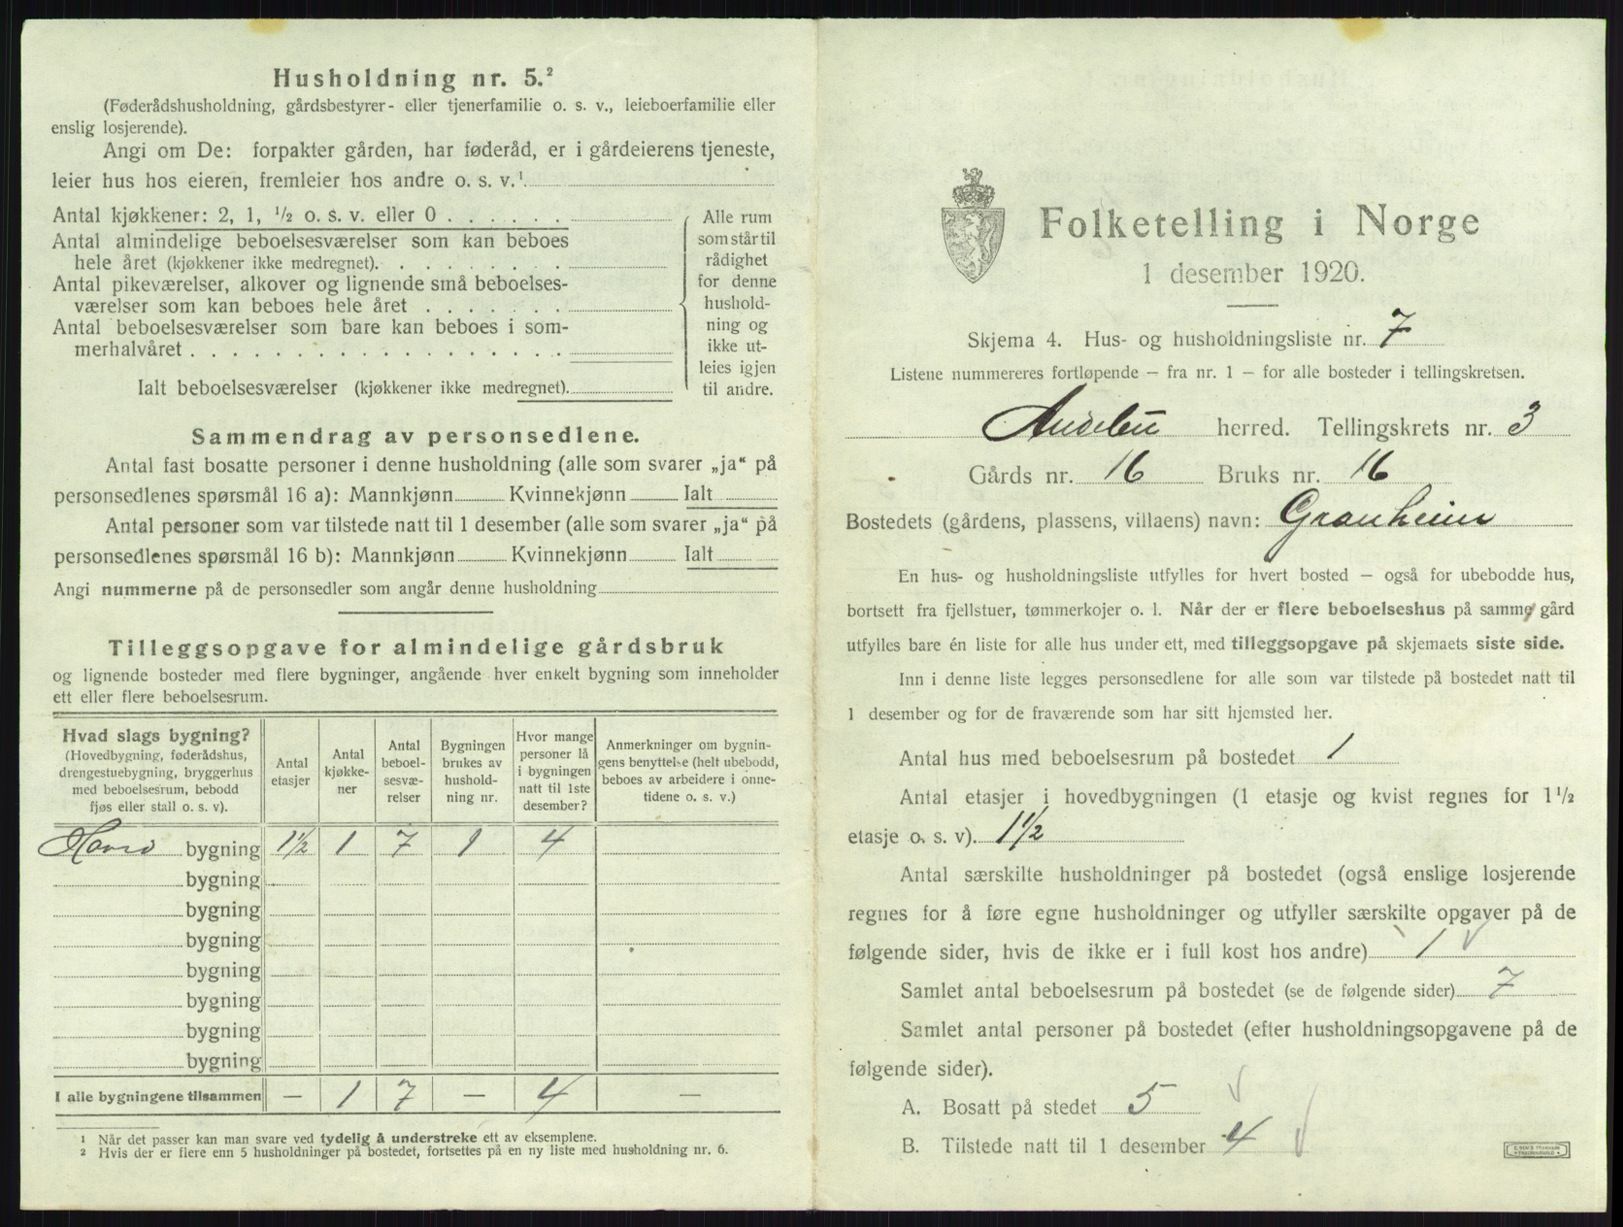 Husholdning nr. 5.²
(Føderådshusholdning, gårdsbestyrer- eller tjenerfamilie o. s. v., leieboerfamilie eller
enslig losjerende).
Angi om De: forpakter gården, har føderåd, er i gårdeierens tjeneste,
leier hus hos eieren, fremleier hos andre o. s. v.¹
Antal kjøkkener: 2, 1, ½ o. s. v. eller 0 . . . . . .
Antal almindelige beboelsesværelser som kan beboes
hele året (kjøkkener ikke medregnet). . . . . . . . .
Antal pikeværelser, alkover og lignende små beboelses-
værelser som kan beboes hele året . . . . . . .
Antal beboelsesværelser som bare kan beboes i som-
merhalvåret . . . . . . . . . . . . . . . . . .
Ialt beboelsesværelser (kjøkkener ikke medregnet).
Alle rum
som står til
rådighet
for denne
hushold-
ning og
ikke ut-
leies igjen
til andre.
Sammendrag av personsedlene.
Antal fast bosatte personer i denne husholdning (alle som svarer „ja“ på
personsedlenes spørsmål 16 a): Mannkjønn Kvinnekjønn Ialt
Antal personer som var tilstede natt til 1 desember (alle som svarer „ja“ på
personsedlenes spørsmål 16 b): Mannkjønn Kvinnekjønn Ialt
Angi nummerne på de personsedler som angår denne husholdning
Tilleggsopgave for almindelige gårdsbruk
og lignende bosteder med flere bygninger, angående hver enkelt bygning som inneholder
ett eller flere beboelsesrum.
Hvad slags bygning?
(Hovedbygning, føderådshus,
drengestuebygning, bryggerhus
med beboelsesrum, bebodd
fjøs eller stall o. s. v).
Antal
etasjer
Antal
kjøkke-
ner
Antal
beboel-
sesvæ-
relser
Bygningen
brukes av
hushold-
ning nr.
Hvor mange
personer lå
i bygningen
natt til 1ste
desember?
Anmerkninger om bygnin-
gens benyttelse (helt ubebodd,
beboes av arbeidere i onne-
tidene o. s. v.)
Hoved bygning 1½ 1 7 1 4
bygning
bygning
bygning
bygning
bygning
bygning
bygning
I alle bygningene tilsammen — 1 7 — 4 —
¹ Når det passer kan man svare ved tydelig å understreke ett av eksemplene.
² Hvis der er flere enn 5 husholdninger på bostedet, fortsettes på en ny liste med husholdning nr. 6.
Folketelling i Norge
1 desember 1920.
Skjema 4. Hus- og husholdningsliste nr. 7
Listene nummereres fortløpende — fra nr. 1 — for alle bosteder i tellingskretsen.
Andebu herred. Tellingskrets nr. 3
Gårds nr. 16 Bruks nr. 16
Bostedets (gårdens, plassens, villaens) navn: Granheim
En hus- og husholdningsliste utfylles for hvert bosted — også for ubebodde hus,
bortsett fra fjellstuer, tømmerkojer o. l. Når der er flere beboelseshus på samme gård
utfylles bare én liste for alle hus under ett, med tilleggsopgave på skjemaets siste side.
Inn i denne liste legges personsedlene for alle som var tilstede på bostedet natt til
1 desember og for de fraværende som har sitt hjemsted her.
Antal hus med beboelsesrum på bostedet 1
Antal etasjer i hovedbygningen (1 etasje og kvist regnes for 1½
etasje o. s. v). 1½
Antal særskilte husholdninger på bostedet (også enslige losjerende
regnes for å føre egne husholdninger og utfyller særskilte opgaver på de
følgende sider, hvis de ikke er i full kost hos andre) 1 √
Samlet antal beboelsesrum på bostedet (se de følgende sider) 7
Samlet antal personer på bostedet (efter husholdningsopgavene på de
følgende sider).
A. Bosatt på stedet 5 √
B. Tilstede natt til 1 desember 4 √